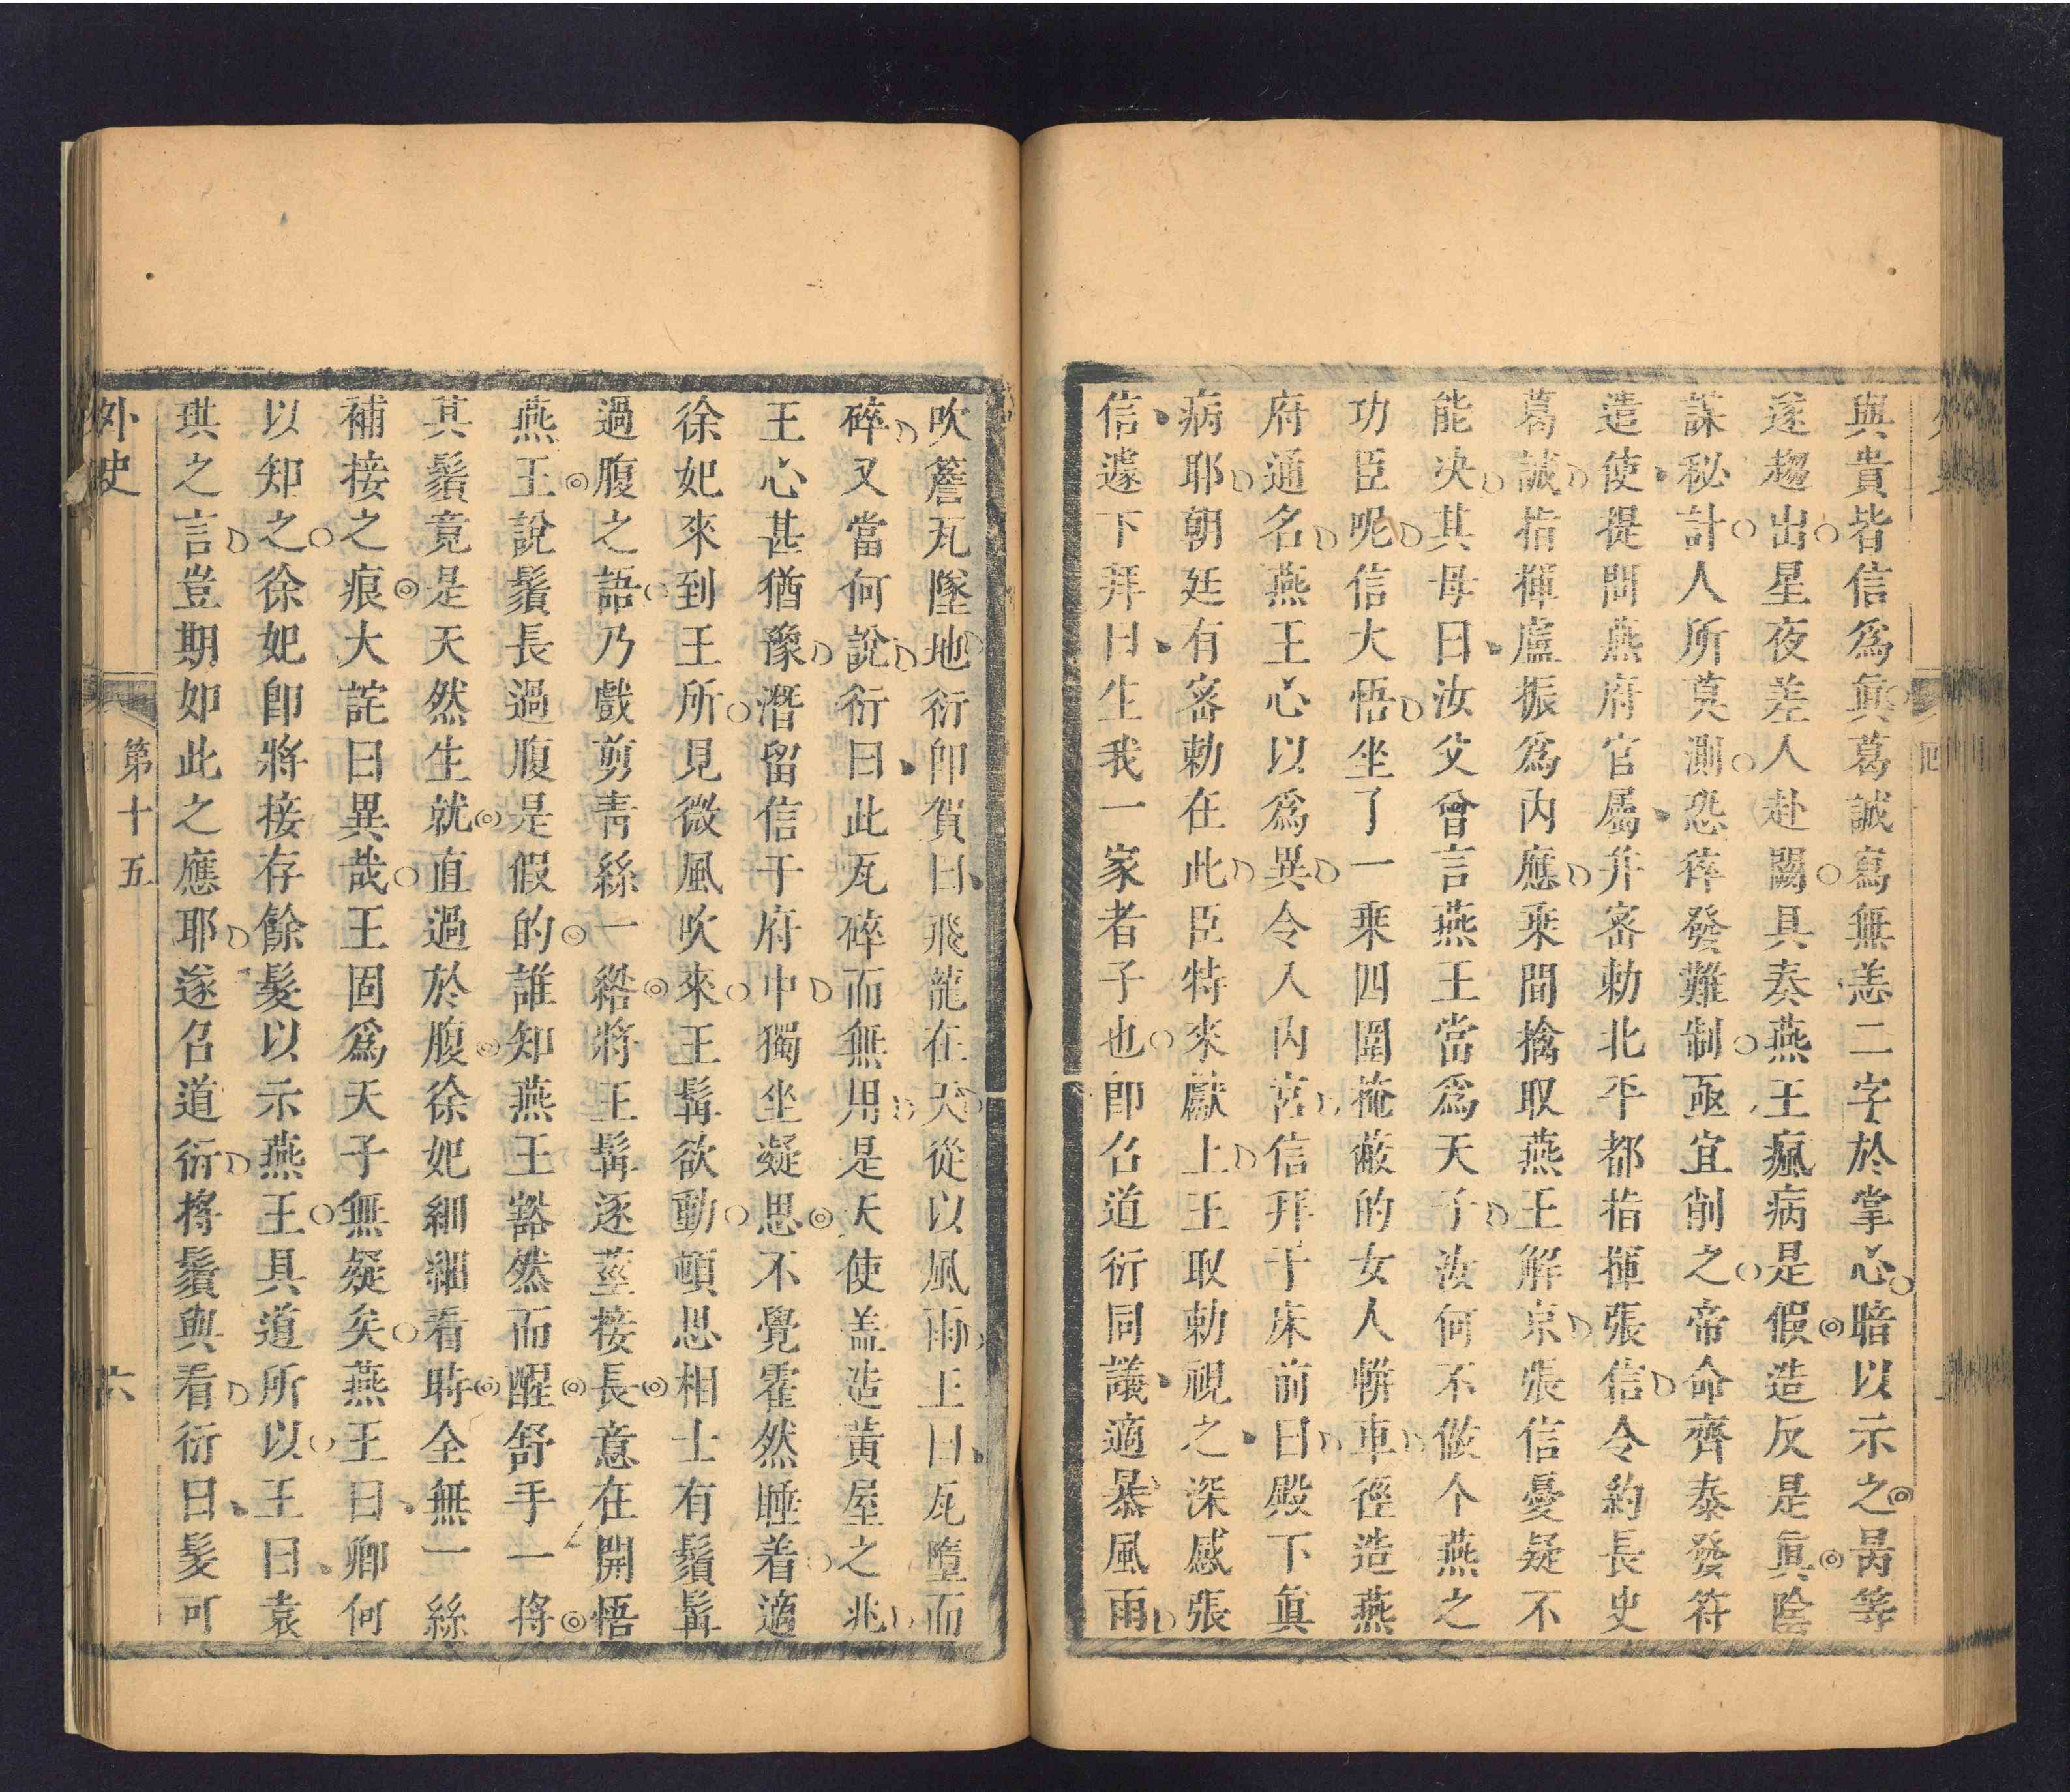 與貴皆信爲眞葛誠寫無恙二字於掌心暗以示之昺等
遂趨出星夜差人赴闕具奏燕王瘋病是假造反是眞陰
謀秘計人所莫測恐猝發難制亟宜削之帝命齊泰發符
遣使提問燕府官屬并密勅北平都指揮張信令約長史
葛誠指揮盧振爲內應乘間擒取燕王解京張信憂疑不
能决其母曰汝父曾言燕王當爲天子汝何不做个燕之
功臣呢信大悟坐了一乘四圍掩蔽的女人軿車徑造燕
府通名燕王心以爲異令入內宮信拜于床前曰殿下眞
病耶朝廷有密勅在此臣特來獻上王取勅視之深感張
信遽下拜曰生我一家者子也卽召道衍同議適暴風雨
吹簷瓦墜地衍卽賀曰飛龍在天從以風雨王曰瓦墮而
碎又當何說衍曰此瓦碎而無用是天使盖造黃屋之兆
王心甚猶豫潛留信于府中獨坐凝思不覺霍然睡着適
徐妃來到王所見微風吹來王髯欲動頓思相士有鬚髯
過腹之語乃戲剪靑絲一綹將王髯逐莖接長意在開悟
燕王說鬚長過腹是假的誰知燕王豁然而醒舒手一捋
其鬚竟是天然生就直過於腹徐妃細細看時全無一絲
補接之痕大詫曰異哉王固爲天子無疑矣燕王曰卿何
以知之徐妃卽將接存餘髮以示燕王具道所以王曰袁
珙之言豈期如此之應耶遂召道衍捋鬚與看衍曰髮可
外史
第十五
六